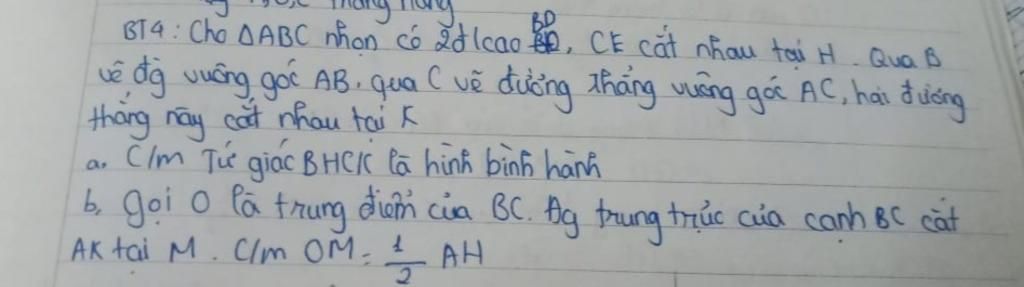 thẳng hàng
BT4: Cho ΔABC nhọn có 2đ/cao BD, CE cắt nhau tại H. Qua B
vẽ đg vuông góc AB, qua C vẽ đường thẳng vuông góc AC, hai đường
thẳng này cắt nhau tại K
a. C/m Tứ giác BHCK là hình bình hành
b, gọi O là trung điểm của BC. Đg trung trực của cạnh BC cắt
AK tại M. C/m OM = 1/2 AH